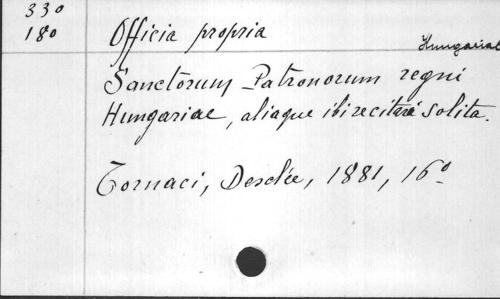 330
180
Officia propria
Hungariae
Sanctorum Patronorum regni
Hungariae, aliaque ibi recitari solita.
Tornaci, Desclée, 1881, 16°